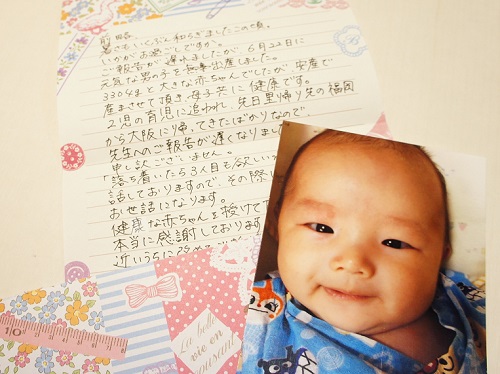 前略
暑さもいくぶん和らぎましたこの頃。
いかがお過ごしですか。
ご報告が遅れましたが、6月22日に
元気な男の子を無事出産しました。
3304gと大きな赤ちゃんでしたが安産で
産まさせて頂き、母子共に健康です。
2児の育児に追われ、先日里帰り先の福岡
から大阪に帰ってきたばかりなので、
先生へのご報告が遅くなりまし
申し訳ございません。
「落ち着いたら3人目も欲しい
話しておりますので、その際
お世話になります。
健康な赤ちゃんを授けて
本当に感謝しております
近いうちに
La belle
vie en
souriant
10